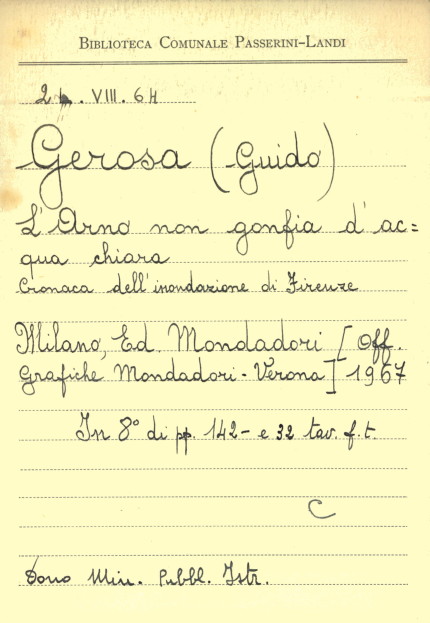 BIBLIOTECA COMUNALE PASSERINI-LANDI
VIII. 64
Gerosa (Guido)
L'Arno non gonfia d'ac=
qua chiara
Cronaca dell'inondazione di Firenze
Milano, Ed. Mondadori [Off.
Grafiche Mondadori - Verona] 1967
In 8° di pp. 142 - e 32 tav. f. t.
C
Dono Min. Pubbl. Istr.